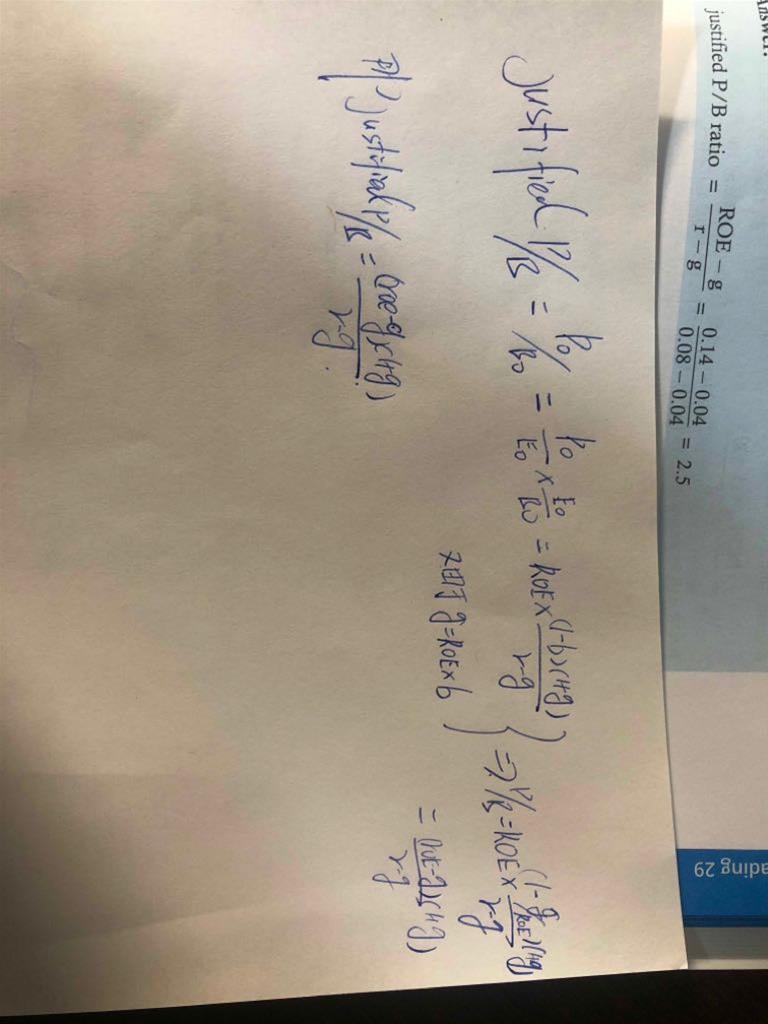 Answer:
justified P/B ratio = (ROE − g)/(r − g) = (0.14 − 0.04)/(0.08 − 0.04) = 2.5
ading 29
Justified P/B = P0/B0 = P0/E0 × E0/B0 = ROE × (1-b)(1+g)/(r-g)
又由于 g = ROE×b
} => P/B = ROE × (1 - g/ROE)(1+g)/(r-g)
= (ROE-g)(1+g)/(r-g)
即 justified P/B = (roe-g)(1+g)/(r-g).